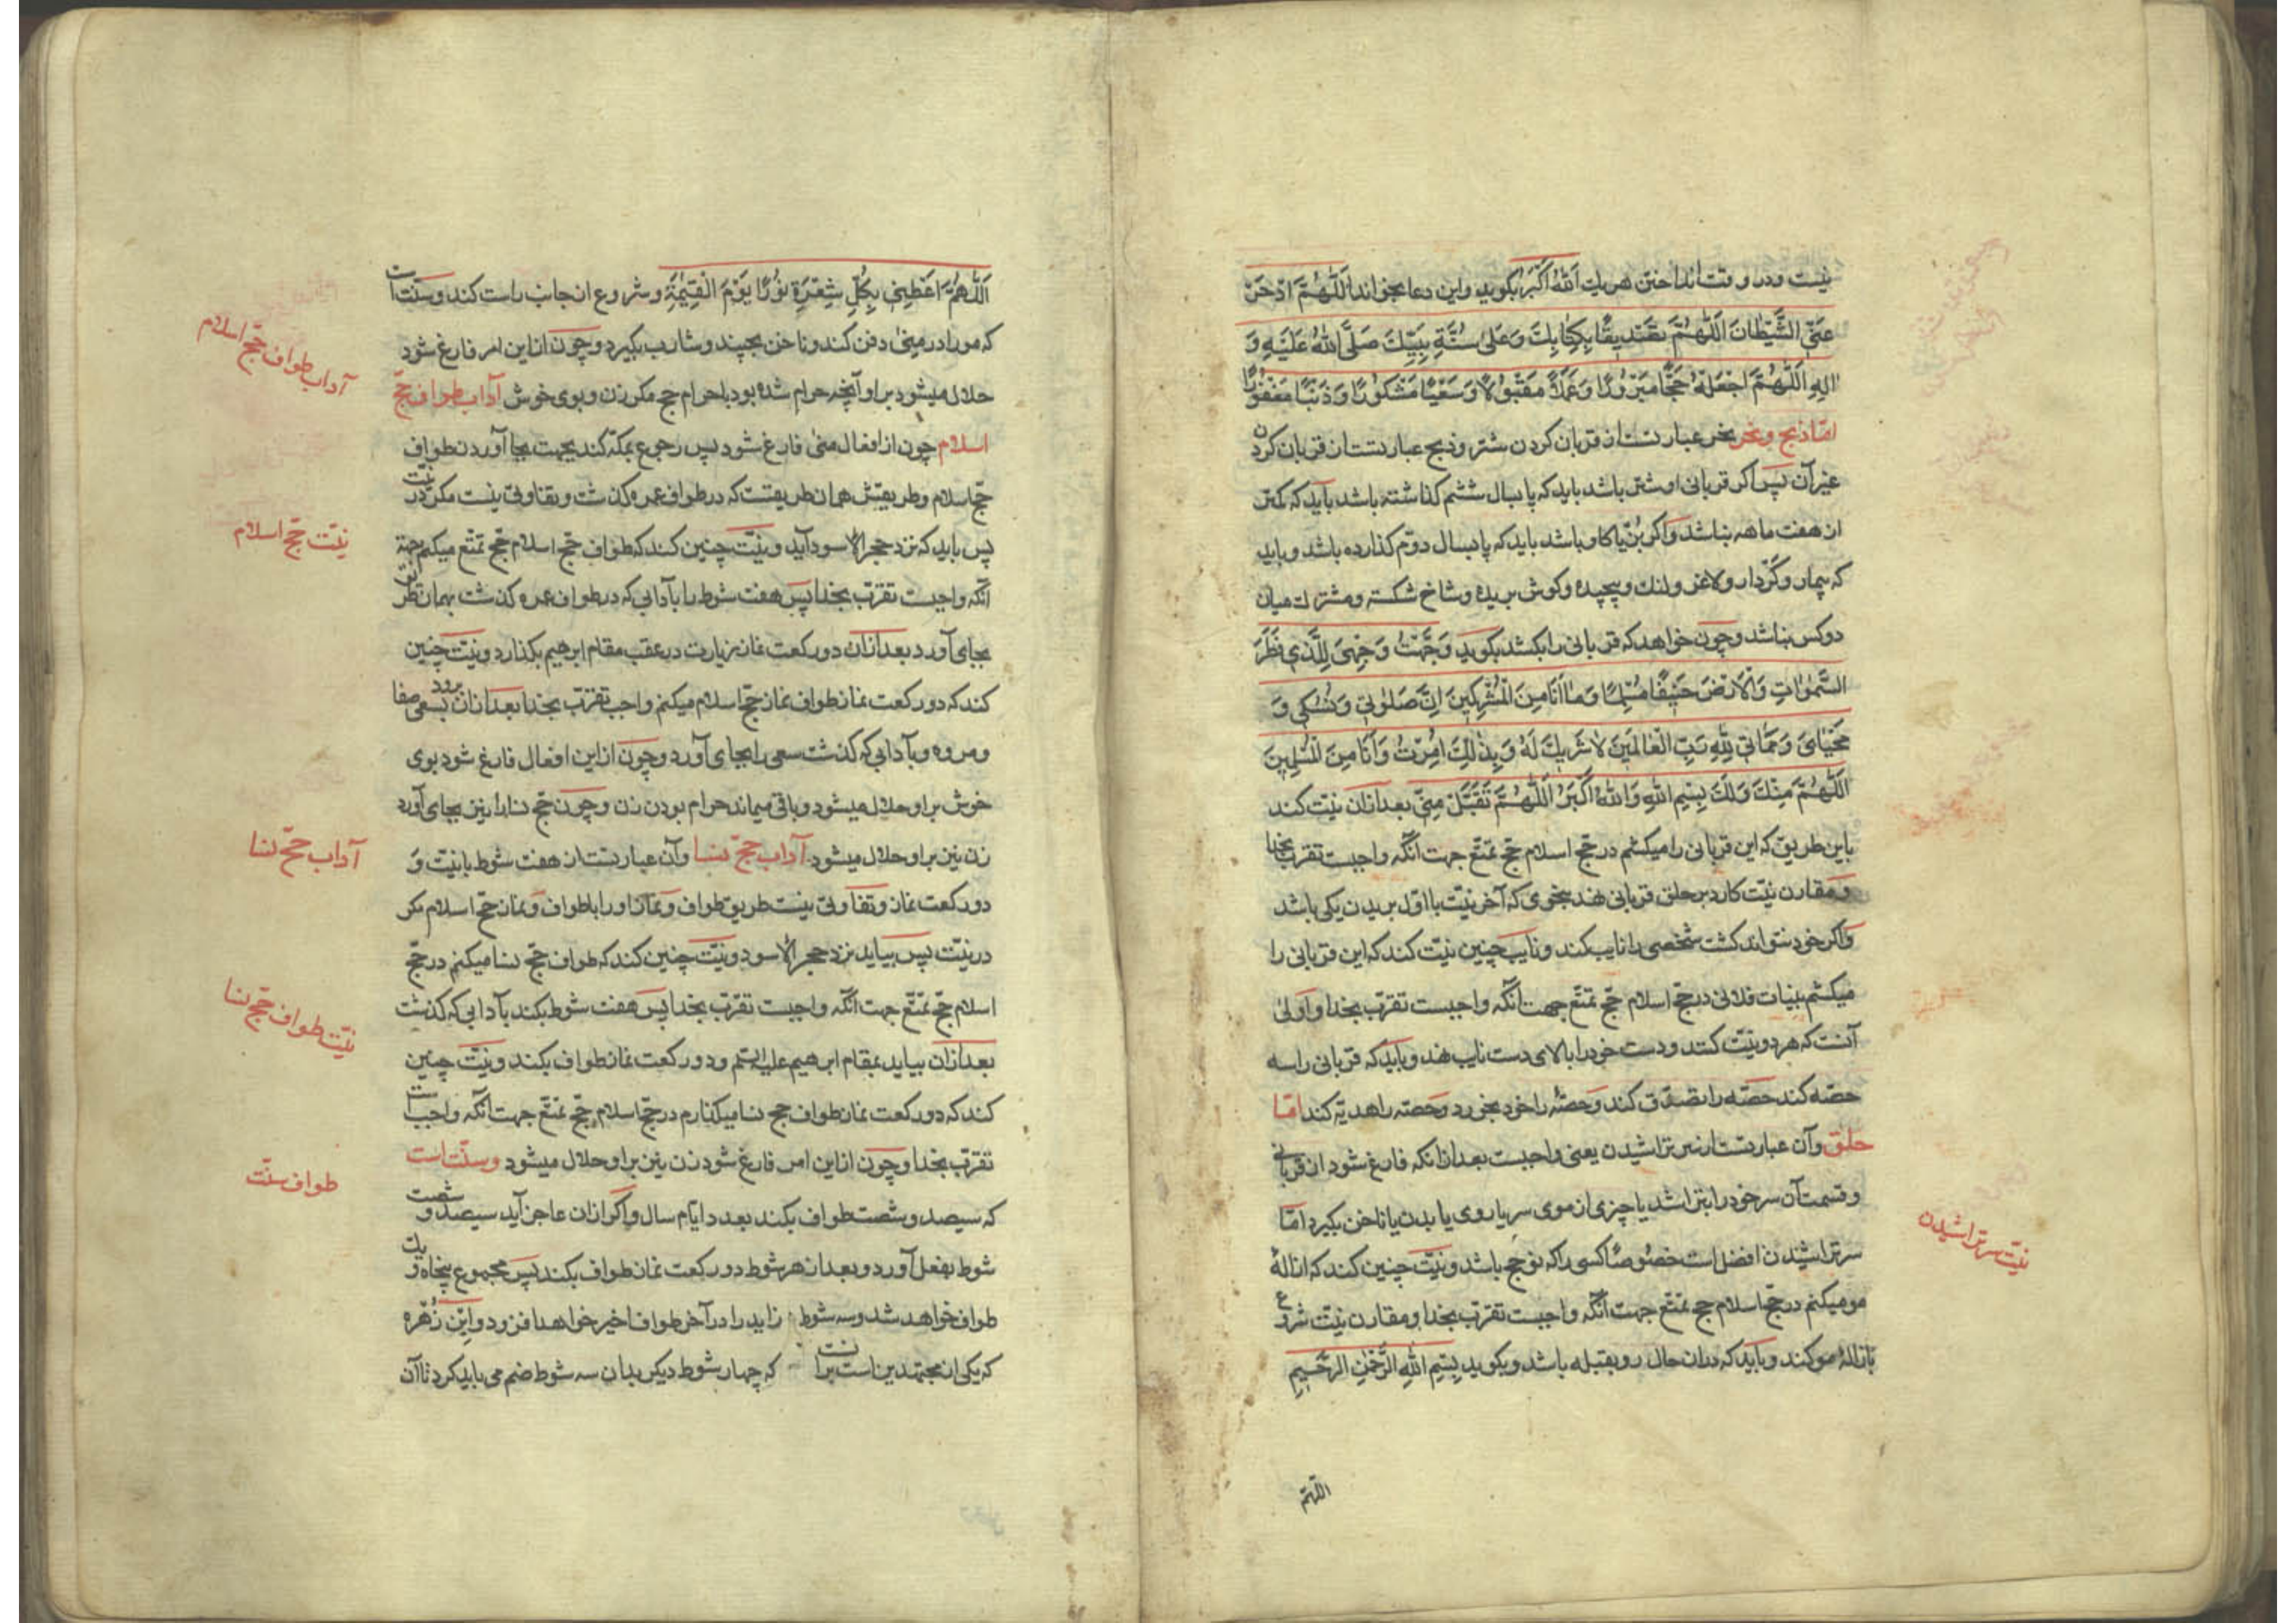 نیست و در وقت انداختن هر یک اَللهُ اَکبَر بکوید و این دعا بخواند اَللّٰهُمَّ ادْحَرْ
عَنِّی الشَّیْطَانَ اَللّٰهُمَّ تَصْدِیقًا بِکِتَابِکَ وَعَلیٰ سُنَّةِ نَبِیِّکَ صَلَّی اللهُ عَلَیْهِ وَ
اٰلِهِ اَللّٰهُمَّ اجْعَلْهُ حَجًّا مَبْرُورًا وَعَمَلًا مَقْبُولًا وَسَعْیًا مَشْکُورًا وَذَنْبًا مَغْفُورًا
امّا ذبح و نحر نحر عبارتست از قربان کردن شتر و ذبح عبارتست از قربان کردن
غیر آن پس اکر قربانی او شتر باشد باید که پا بسال ششم کذاشته باشد باید که کمتر
از هفت ماهه نباشد واکر بُز یا کاو باشد باید که پا بسال دوّم کذارده باشد و باید
که بیمار و کَر دار و لاغر و لنک و پیچیده و کوش بریده و شاخ شکسته و مشترک میان
دو کس نباشد و چون خواهد که قربانی را بکشد بکوید وَجَّهْتُ وَجْهِیَ لِلَّذِی فَطَرَ
السَّمٰوَاتِ وَالْاَرْضَ حَنِیفًا مُسْلِمًا وَمَا اَنَا مِنَ الْمُشْرِکِینَ اِنَّ صَلٰوتِی وَنُسُکِی وَ
مَحْیَایَ وَمَمَاتِی لِلّٰهِ رَبِّ الْعَالَمِینَ لَا شَرِیکَ لَهُ وَبِذٰلِکَ اُمِرْتُ وَاَنَا مِنَ الْمُسْلِمِینَ
اَللّٰهُمَّ مِنْکَ وَلَکَ بِسْمِ اللهِ وَاللهُ اَکْبَرُ اَللّٰهُمَّ تَقَبَّلْ مِنِّی بعد ازان نیّت کند
باین طریق که این قربانی را میکشم در حجّ اسلام حجّ تمتّع جهت آنکه واجبست تقرّب بخدا
و مقارن نیّت کارد بر حلق قربانی نهد بنحوی که آخر نیّت با اوّل بریدن یکی باشد
واکر خود نتواند کشت شخصی را نایب کند و نایب چنین نیّت کند که این قربانی را
میکشم بنیابت فلانی در حجّ اسلام حجّ تمتّع جهت آنکه واجبست تقرّب بخدا و اَولیٰ
آنست که هر دو نیّت کنند و دست خود را بالای دست نایب نهد و باید که قربانی را سه
حصّه کند حصّه را تصدّق کند و حصّهٔ را خود بخورد و حصّه را هدیّه کند امّا
حلق و آن عبارتست از سر تراشیدن یعنی واجبست بعد ازانکه فارغ شود از قربانی
و قسمت آن سر خود را بتراشد یا چیزی از موی سر یا روی یا بدن یا ناخن بکیرد امّا
سر تراشیدن افضل است خصوصًا کسی را که نو حج باشد و نیّت چنین کند که ازالهٔ
مو میکنم در حجّ اسلام حج تمتّع جهت آنکه واجبست تقرّب بخدا و مقارن نیّت شروع
بازالهٔ مو کند و باید که دران حال رو بقبله باشد و بکوید بِسْمِ اللهِ الرَّحْمٰنِ الرَّحِیمِ
نیّت سر تراشیدن
اللّهمّ
اَللّٰهُمَّ اَعْطِنِی بِکُلِّ شَعْرَةٍ نُورًا یَوْمَ الْقِیٰمَةِ و شروع از جانب راست کند و سنّت است
که مو را در منیٰ دفن کند و ناخن بچیند و شارب بکیرد و چون از این امر فارغ شود
حلال میشود بر او آنچه حرام شده بود باحرام حج مکر زن و بوی خوش آداب طواف حجّ
اسلام چون از افعال منی فارغ شود پس رجوع بمکّه کند بجهت بجا آوردن طواف
حجّ اسلام و طریقش همان طریقست که در طواف عمره کذشت و تفاوتی نیست مکر در نیّت
پس باید که نزد حجر الاسود آید و نیّت چنین کند که طواف حجّ اسلام حجّ تمتّع میکنم جهة
آنکه واجبست تقرّب بخدا پس هفت شوط را بآدابی که در طواف عمره کذشت بهمان طریق
بجای آورد بعد ازان دو رکعت نماز زیارت در عقب مقام ابرهیم بکذارد و نیّت چنین
کند که دو رکعت نماز طواف نماز حجّ اسلام میکنم واجب تقرّب بخدا بعد ازان بسعی صفا برود
و مروه و بآدابی که کذشت سعی را بجای آورد و چون از این افعال فارغ شود بوی
خوش بر او حلال میشود و باقی میماند حرام بودن زن و چون حجّ نسا را نیز بجای آورد
زن نیز بر او حلال میشود آداب حجّ نسا و آن عبارتست از هفت شوط با نیّت و
دو رکعت نماز و تفاوتی نیست طریق طواف و نماز او را با طواف و نماز حجّ اسلام مکر
در نیّت پس بیاید نزد حجر الاسود و نیّت چنین کند که طواف حجّ نسا میکنم در حجّ
اسلام حجّ تمتّع جهت آنکه واجبست تقرّب بخدا پس هفت شوط بکند بآدابی که کذشت
بعد ازان بیاید بمقام ابرهیم علیه السلم و دو رکعت نماز طواف بکند و نیّت چنین
کند که دو رکعت نماز طواف حج نسا میکذارم در حجّ اسلام حجّ تمتّع جهت آنکه واجبست
تقرّب بخدا و چون از این امر فارغ شود زن نیز بر او حلال میشود و سنّت است
که سیصد و شصت طواف بکند بعدد ایّام سال و اکر ازان عاجز آید سیصد و شصت
شوط بفعل آورد و بعد از هر شوط دو رکعت نماز طواف بکند پس مجموع پنجاه و یک
طواف خواهد شد و سه شوط زاید را در آخر طواف اخیر خواهد افزود و ابن زُهره
که یکی از مجتهدین است برانست که چهار شوط دیکر بدان سه شوط ضم می باید کرد تا آن
آداب طواف حجّ اسلام
نیّت حجّ اسلام
آداب حجّ نسا
نیّت طواف حجّ نسا
طواف سنّت